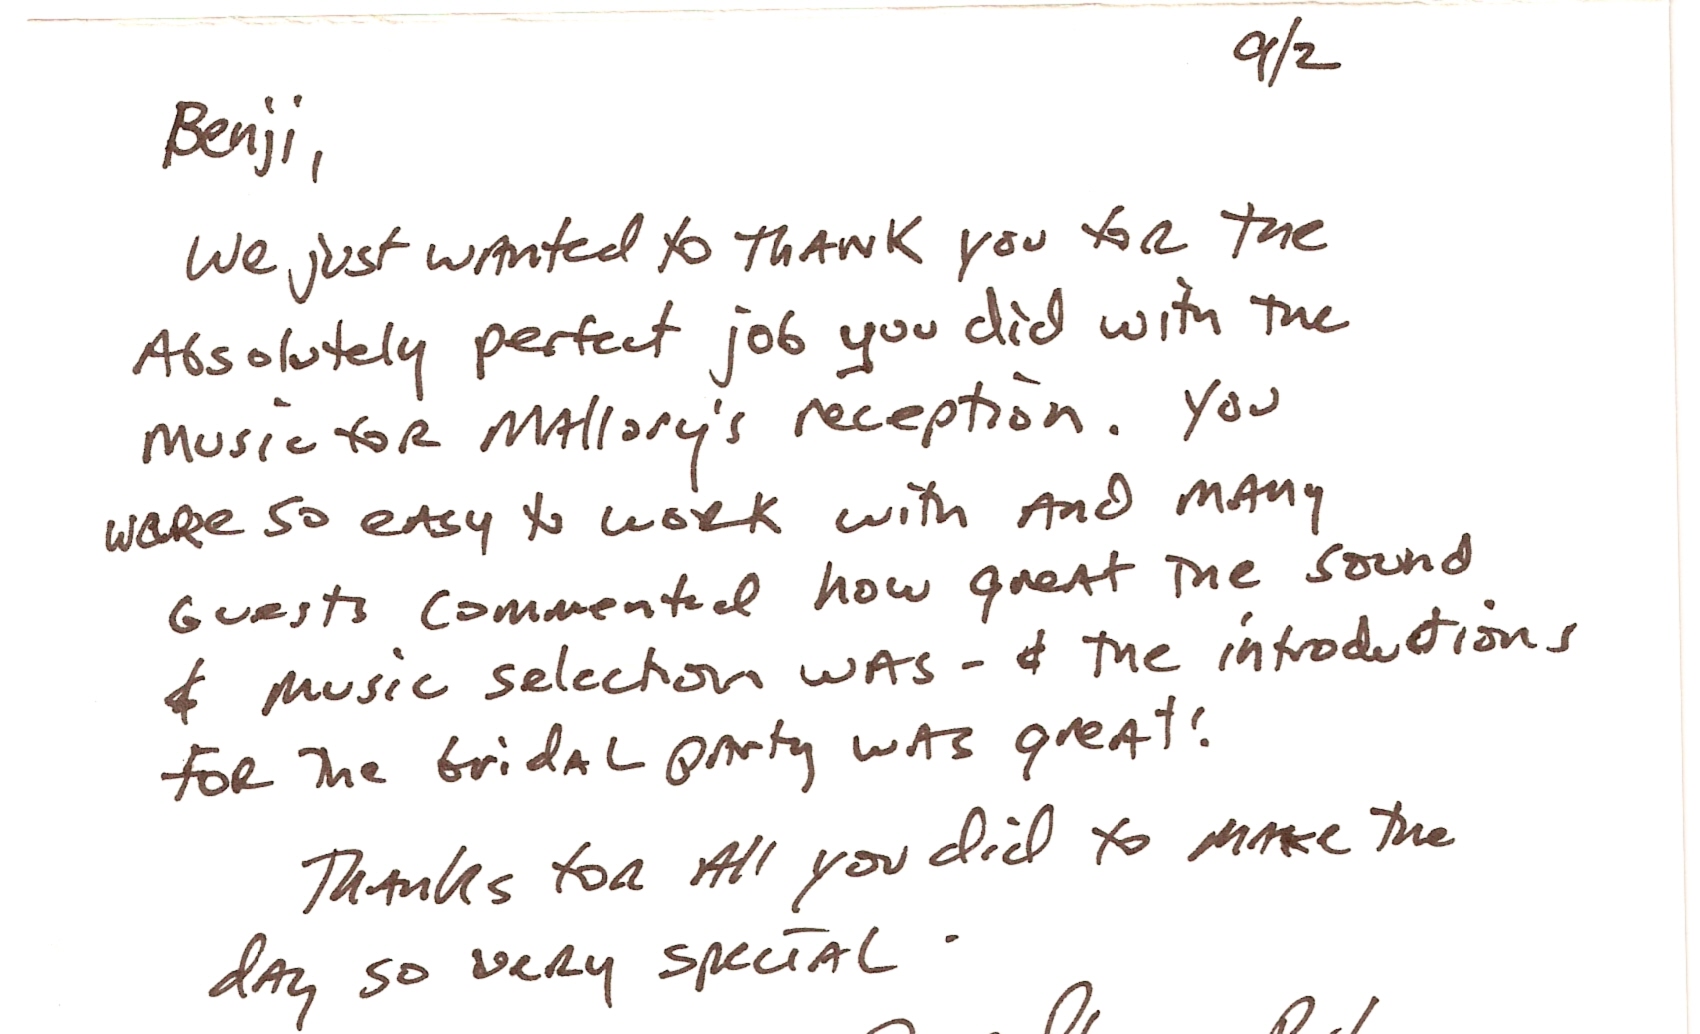 9/2
Benji,
We just wanted to THANK you for the
Absolutely perfect job you did with the
music for Mallory's reception. You
were so easy to work with and many
Guests commented how great the sound
& music selection was - & the introductions
for the bridal party was great!
Thanks for All you did to make the
day so very special.